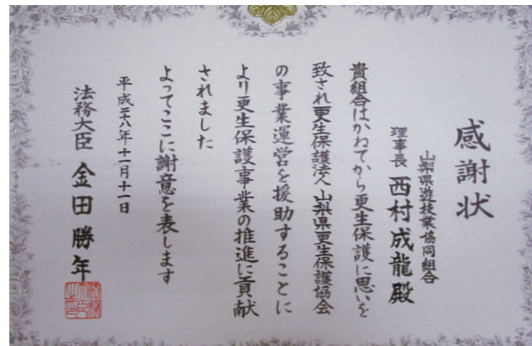 感謝状
山梨県遊技業協同組合
理事長 西村成龍殿
貴組合はかねてから更生保護に思いを
致され更生保護法人山梨県更生保護協会
の事業運営を援助することに
より更生保護事業の推進に貢献
されました
よってここに謝意を表します
平成二十八年十一月十一日
法務大臣 金田勝年